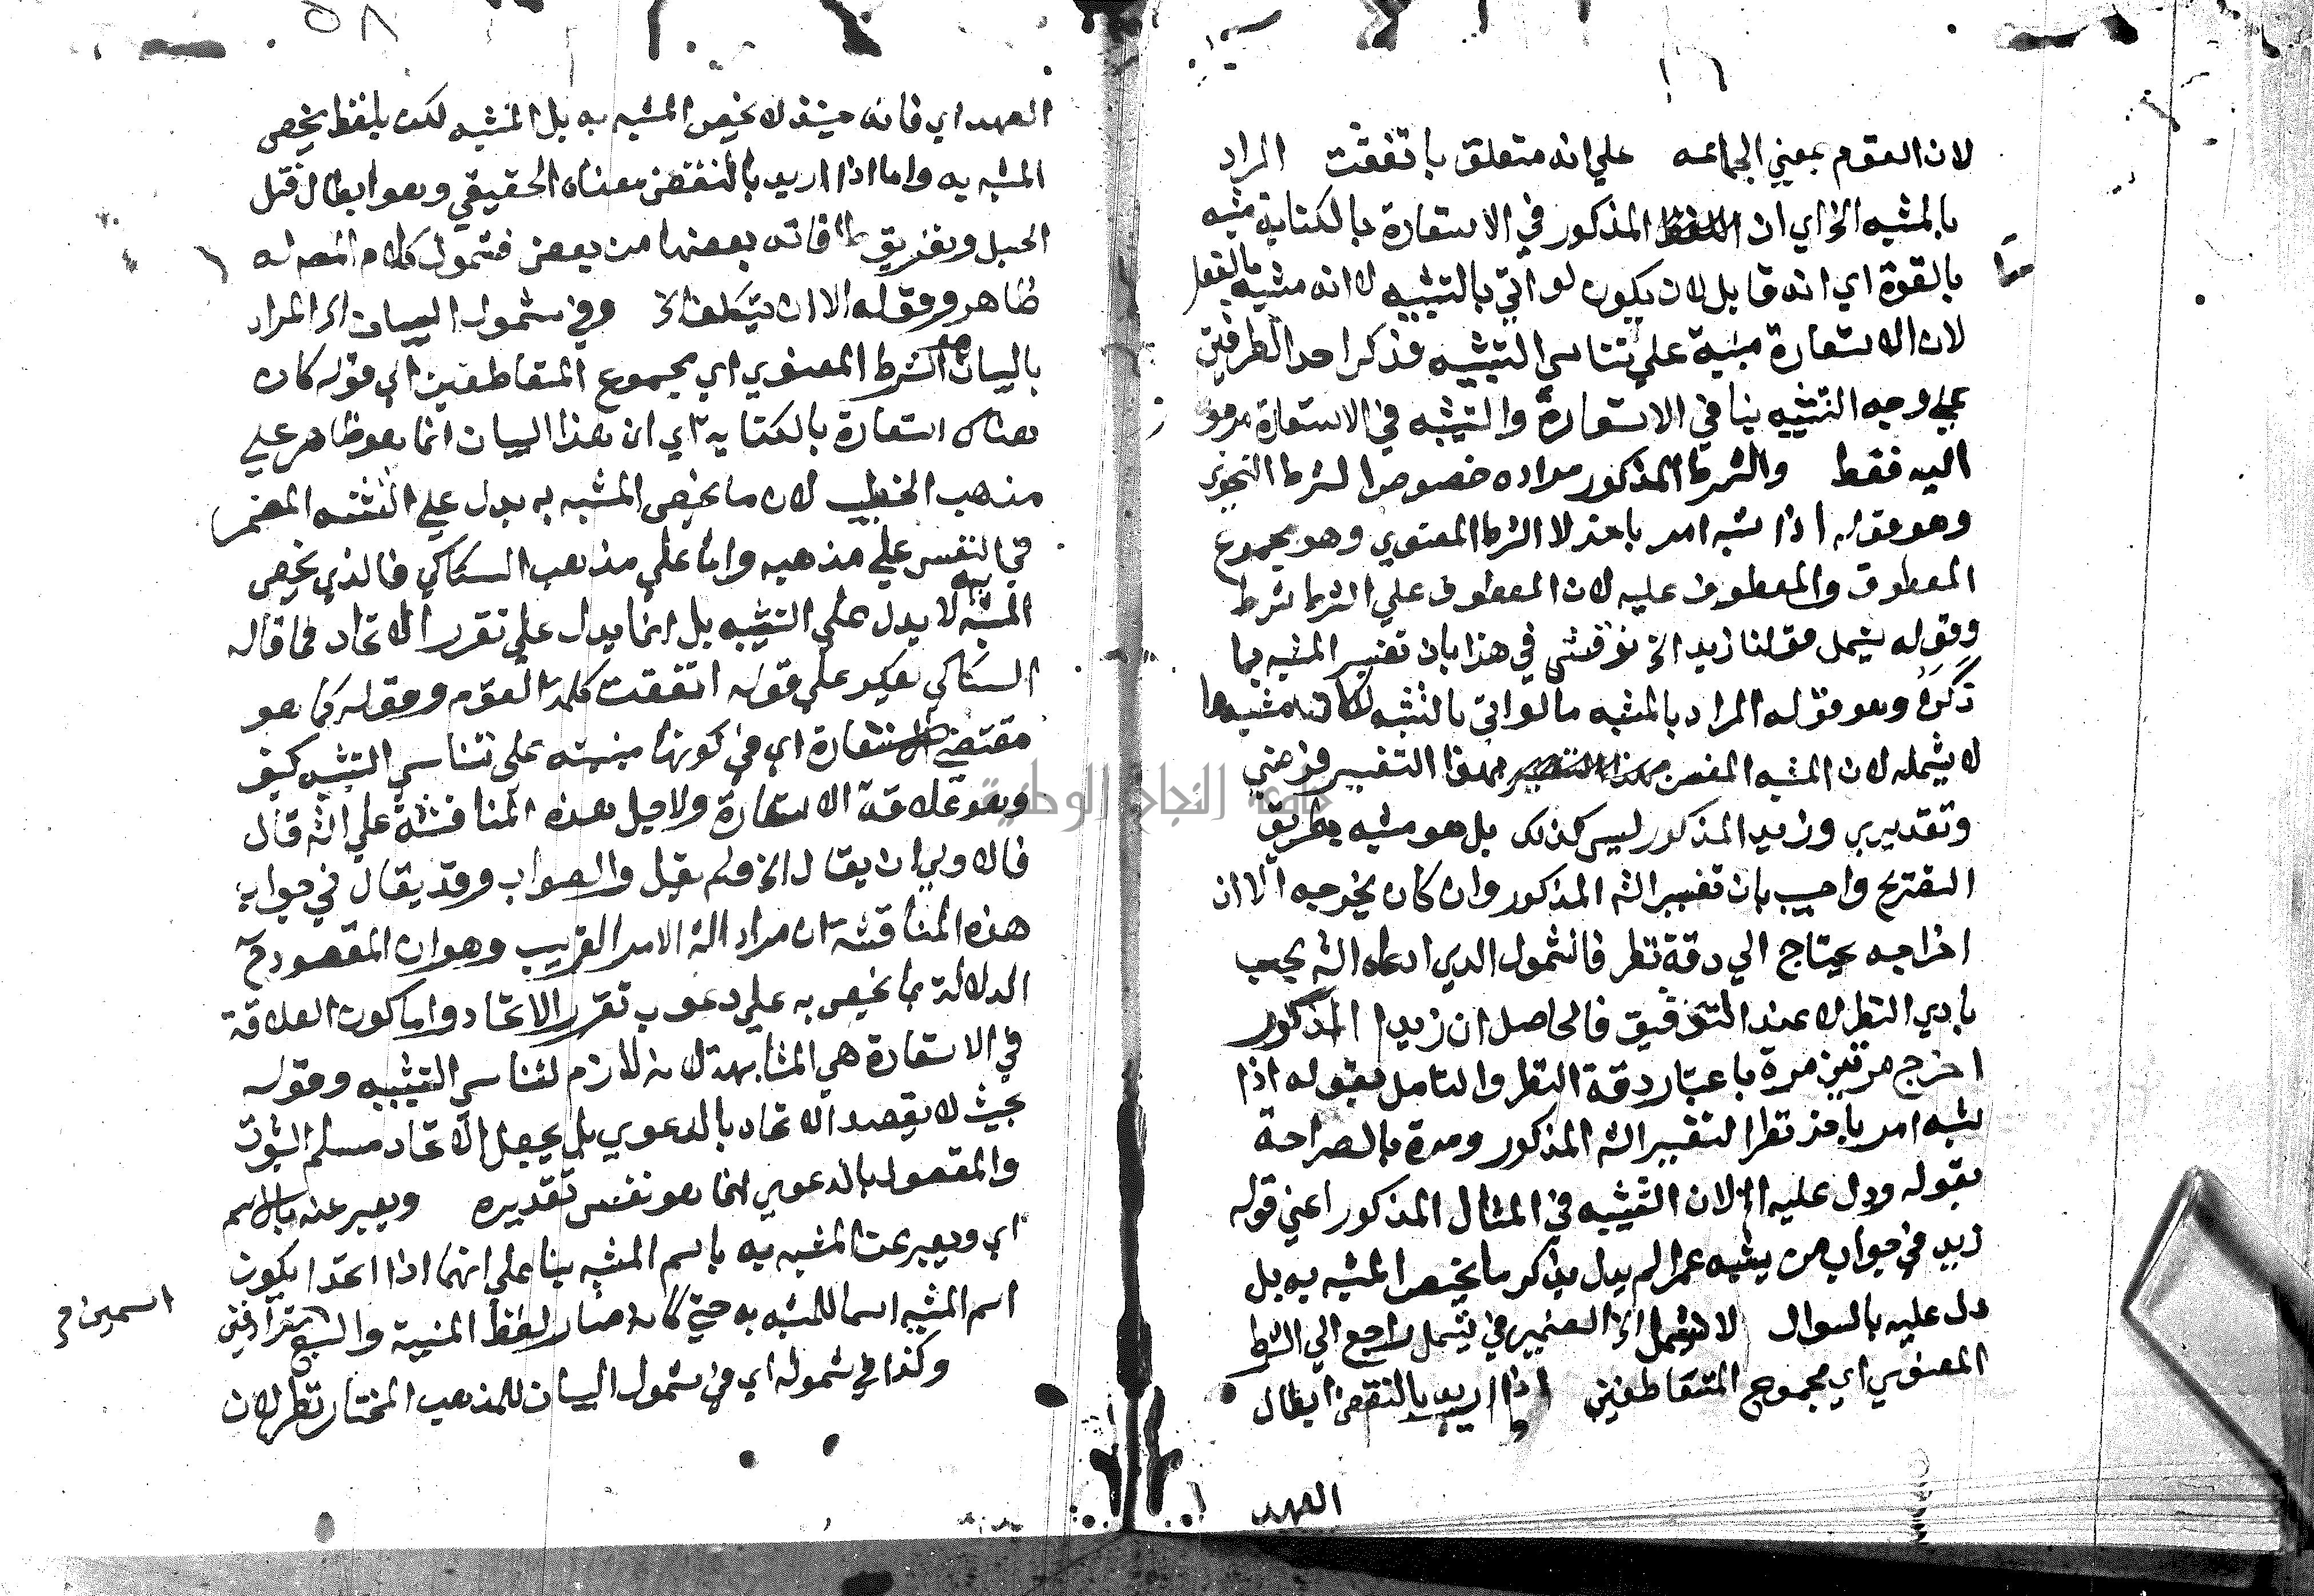 لان القوم بمعني الجماعه علي انه متعلق باتفقت المراد
بالمشبه الخ اي ان اللفظ المذكور في الاستعارة بالكناية مشبه
بالقوة اي انه قابل لان يكون لو اتي بالتشبيه لا انه مشبه بالفعل
لان الاستعارة مبنية علي تناسي التشبيه فذكر احد الطرفين
علي وجه التشبيه ينافي الاستعارة والتشبيه في الاستعارة مرموز
اليه فقط والشرط المذكور مراده خصوص الشرط النحوي
وهو قوله اذا شبه امر باخر لا الشرط المعنوي وهو مجموع
المعطوف والمعطوف عليه لان المعطوف علي الشرط شرط
وقوله يشمل قولنا زيد الخ نوقش في هذا بان تفسير المشبه بما
ذكره وهو قوله المراد بالمشبه ما لو اتي بالتشبه لكان مشبها
لا يشمله لان المشبه المفسر بهذا التفسير فرضي
وتقديري وزيد المذكور ليس كذلك بل هو مشبه بطريق
التصريح واجيب بان تفسير الش المذكور وان كان يخرجه الا ان
اخراجه يحتاج الي دقة نظر فالشمول الذي ادعاه الش بحسب
بادي النظر لا عند التوفيق فالحاصل ان زيدا المذكور
اخرج مرتين مرة باعتبار دقة النظر والتامل بقوله اذا
شبه امر باخر نظرا لتفسير الش المذكور ومرة بالصراحة
بقوله ودل عليه الخ لان التشبيه في المثال المذكور اعني قوله
زيد في جواب من يشبه عمرا لم يدل بذكر ما يخص المشبه به بل
دل عليه بالسوال لا يشمل الخ الضمير في يشمل راجع الي الشرط
المعنوي اي مجموع المتعاطفين اذا اريد بالنقض ابطال
العهد
العهد اي فانه حينئذ لا يخص المشبه به بل المشبه لكن بلفظ يخص
المشبه به واما اذا اريد بالنقض معناه الحقيقي وهو ابطال فتل
الحبل وتفريق طاقاته بعضها من بعض فشمول كلام المص له
ظاهر وقوله الا ان يتكلف الخ وفي شمول البيان الخ المراد
بالبيان الشرط المعنوي اي مجموع المتعاطفين الي قوله كان
هناك استعارة بالكناية اي ان هذا البيان انما هو ظاهر علي
مذهب الخطيب لان ما يخص المشبه به يدل علي التشبيه المضمر
في النفس علي مذهبه واما علي مذهب السكاكي فالذي يخص
المشبه به لا يدل علي التشبيه بل انما يدل علي تقرر الاتحاد فما قاله
السكاكي يعكر علي قوله اتفقت كلمة القوم وقوله كما هو
مقتضي الاستعارة اي في كونها مبنية علي تناسي التشبيه كيف
وهو علاقة الاستعارة ولاجل هذه المناقشة علي الش قال
فالاولي ان يقال الخ ولم يقل والصواب وقد يقال في جواب
هذه المناقشة ان مراد الش الامر القريب وهو ان المقصود
الدلالة بما يخص به علي دعوي تقرر الاتحاد واما كون العلاقة
في الاستعارة هي المشابهة لانه لازم لتناسي التشبيه وقوله
بحيث لا يقصد الاتحاد بالدعوي بل يجعل الاتحاد مسلم الثبوت
والمقصود بالدعوي انما هو نفس تقديره ويعبر عنه بالاسم
اي ويعبر عن المشبه به باسم المشبه بنا علي انهما اذا اتحدا يكون
اسم المشبه اسما للمشبه به حتي كانه صار لفظ المنية والسبع مترادفين
اسمين
وكذا في شموله اي في شمول البيان للمذهب المختار نظر لان
جامعة النجاح الوطنية